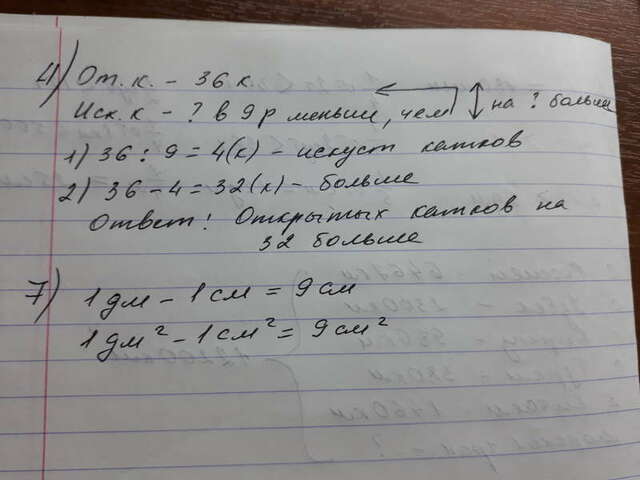 4) От. к. - 36 к
Иск. к - ? в 9 р меньше, чем на ? больше
1) 36 : 9 = 4 (к) - искуст катков
2) 36 - 4 = 32 (к) - больше
Ответ: Открытых катков на
32 больше
7) 1 дм - 1 см = 9 см
1 дм² - 1 см² = 9 см²